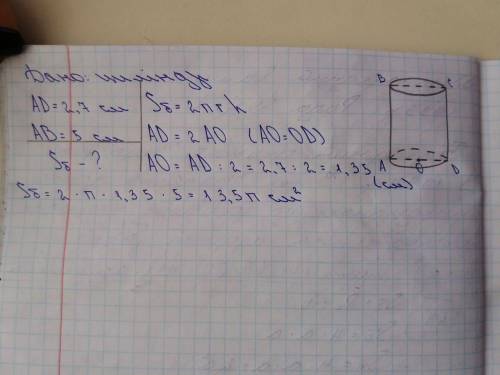 Дано: циліндр
AD = 2,7 см
AB = 5 см
Sб - ?
Sб = 2πrh
AD = 2AO (AO = OD)
AO = AD : 2 = 2,7 : 2 = 1,35 (см)
Sб = 2 · π · 1,35 · 5 = 13,5π см²
B C
A O D